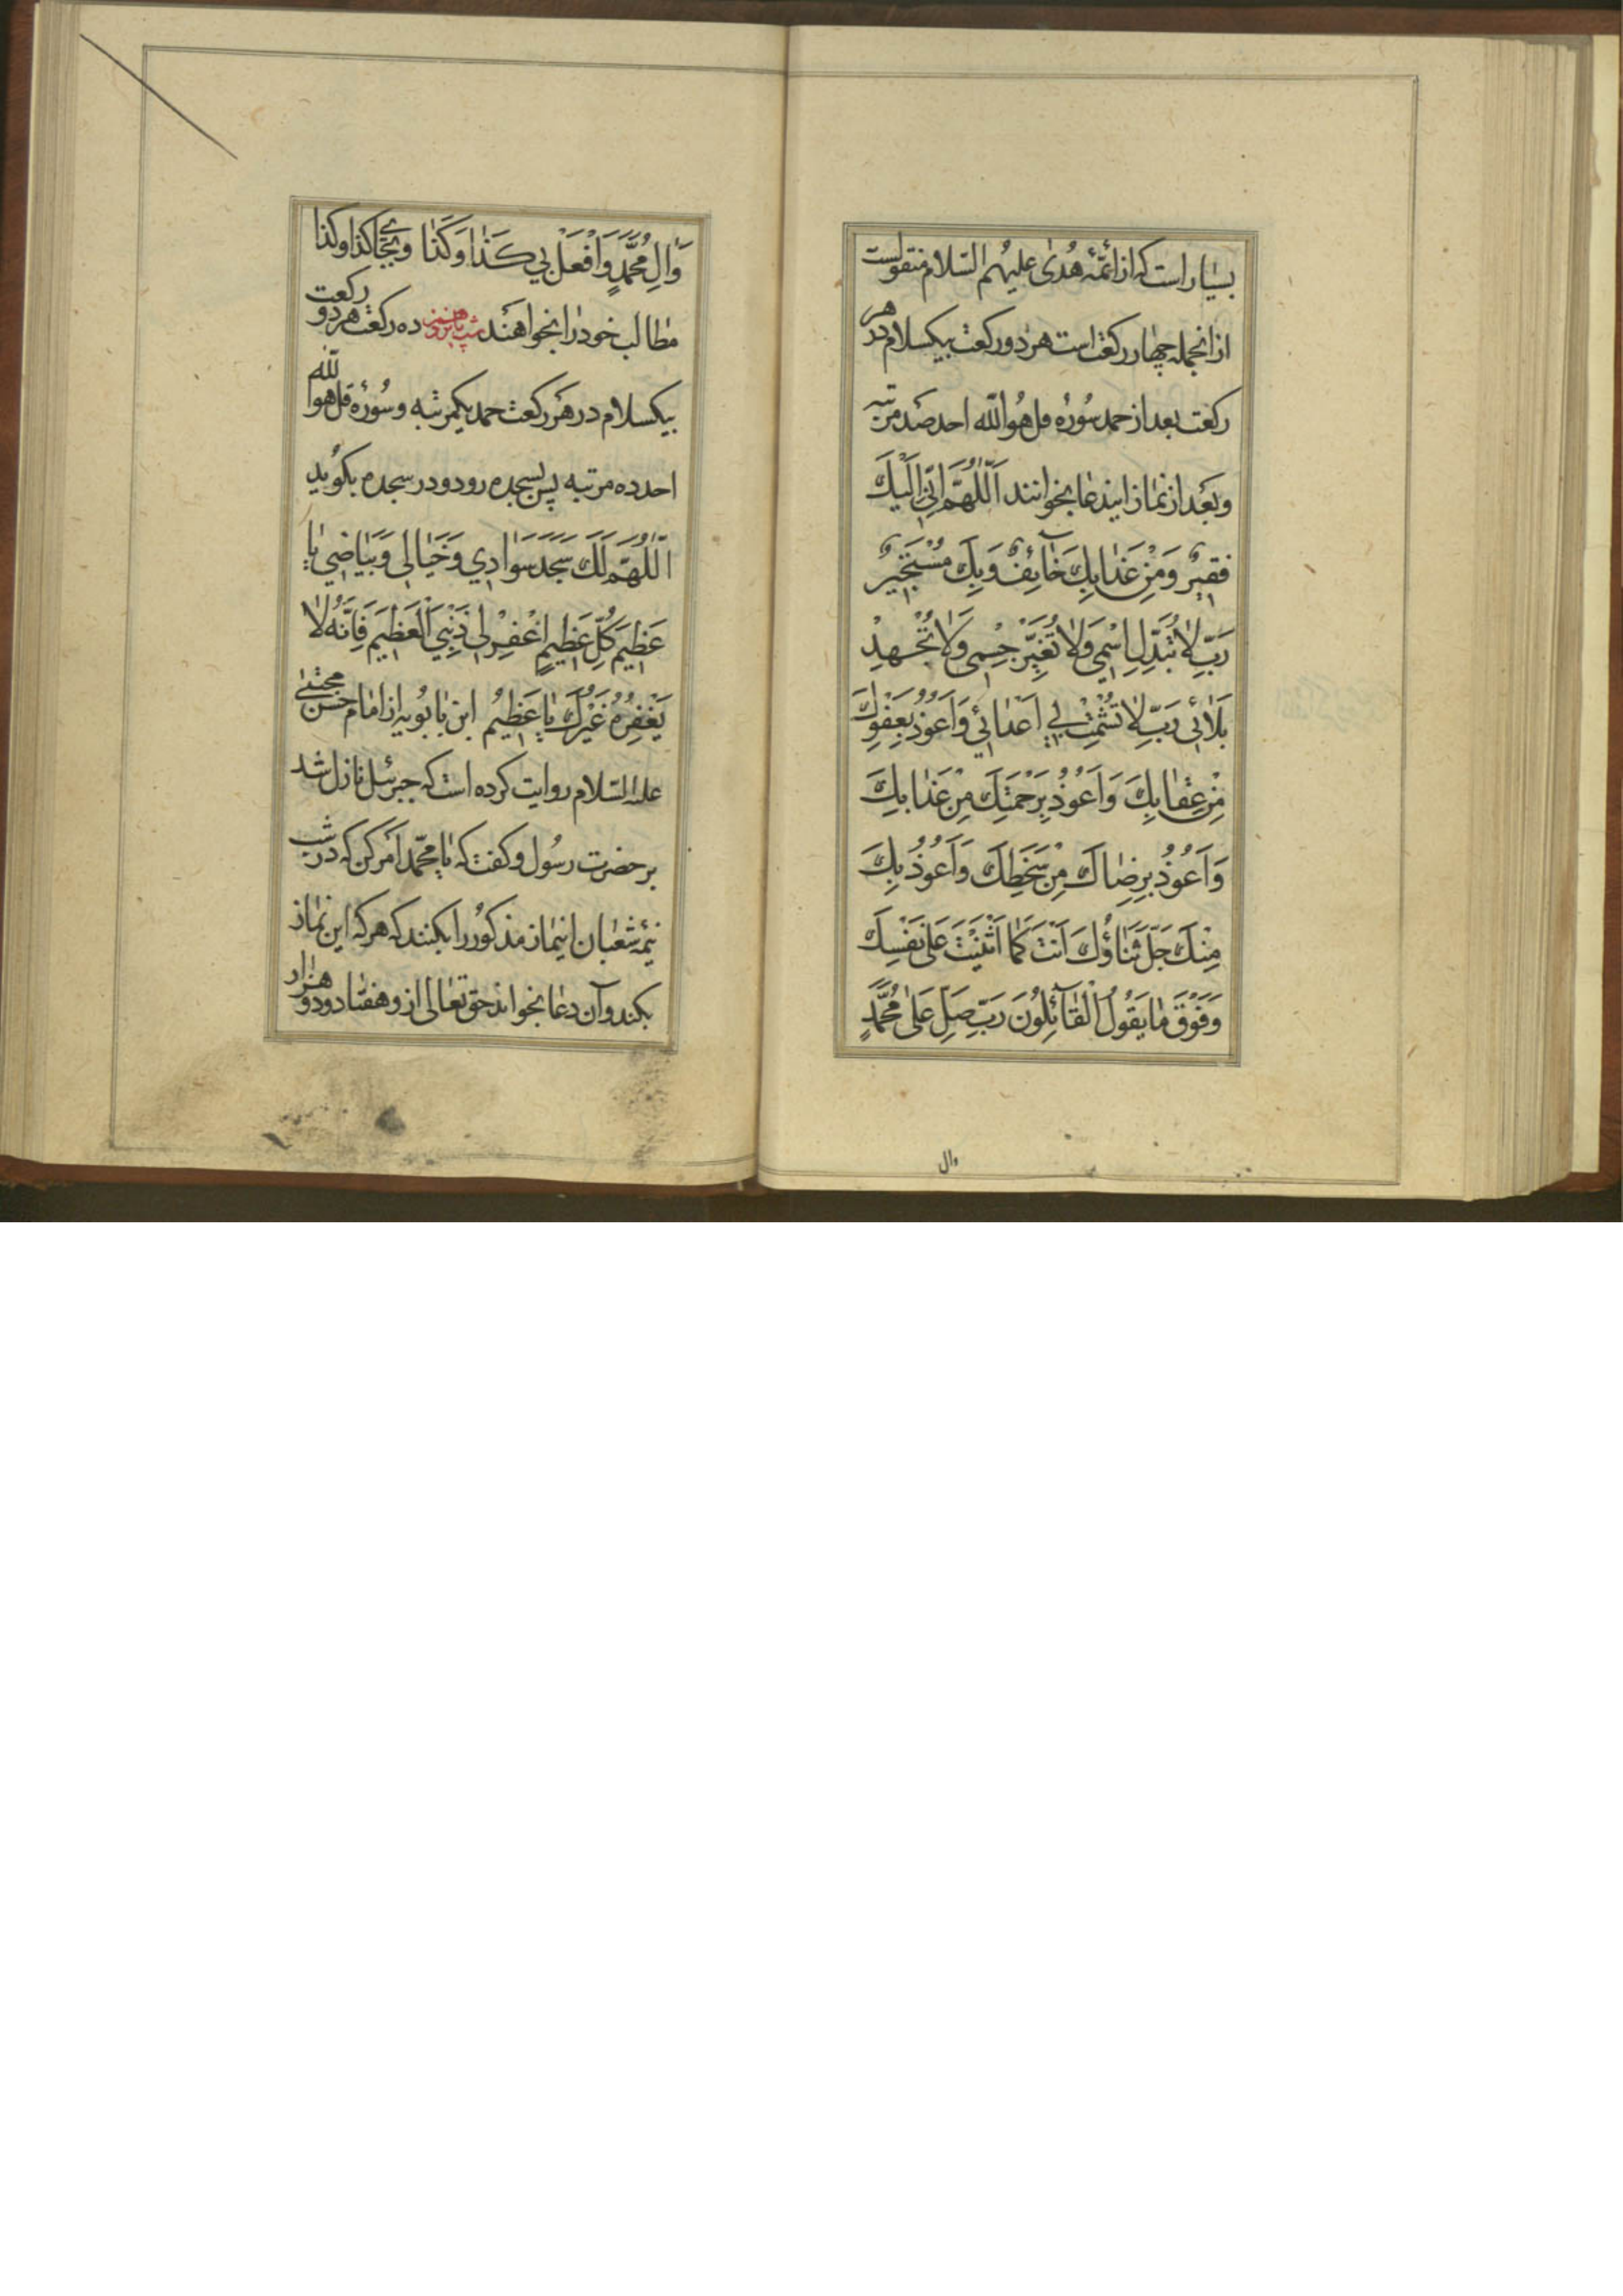 بسیار است که از ائمّهٔ هُدیٰ علیهم السّلام منقولست
از انجمله چهار رکعت است هر دو رکعت بیکسلام در هر
رکعت بعد از حمد سُورهٔ قل هُوالله احد صد مرتبه
و بَعْد از نماز ایندعا بخوانند اَللّٰهُمَّ اِنّی اِلَیْكَ
فَقیرٌ وَمِنْ عَذابِكَ خٰآئِفٌ وَبِكَ مُسْتَجیرٌ
رَبِّ لاٰ تُبَدِّلِ اسْمي وَلاٰ تُغَيِّرْ جِسْمی وَلاٰ تُجْهِدْ
بَلاٰئی رَبِّ لاٰ تُشْمِتْ بي اَعْدٰائي وَاَعُوذُ بِعَفْوِكَ
مِنْ عِقٰابِكَ وَاَعُوذُ بِرَحْمَتِكَ مِنْ عَذٰابِكَ
وَاَعُوذُ بِرِضٰاكَ مِنْ سَخَطِكَ وَاَعُوذُ بِكَ
مِنْكَ جَلَّ ثَنٰاؤُكَ اَنْتَ كَمٰا اَثْنَيْتَ عَلیٰ نَفْسِكَ
وَفَوْقَ مٰا يَقُولُ الْقٰآئِلُونَ رَبِّ صَلِّ عَلیٰ مُحَمَّدٍ
وال
وَاٰلِ مُحَمَّدٍ وَافْعَلْ بي كَذٰا وَكَذٰا وبجای کذا وکذا
مطالب خود را بخواهند ده رکعت هر دو رکعت
بیکسلام در هر رکعت حمد یکمرتبه و سُورهٔ قل هوالله
احد ده مرتبه پس بسجده رود و در سجده بکوید
اَللّٰهُمَّ لَكَ سَجَدَ سَوٰادي وَخَيٰالی وَبَيٰاضي يٰا
عَظيمَ كُلِّ عَظيمٍ اِغْفِرْ لی ذَنْبِيَ الْعَظيمَ فَاِنَّهُ لاٰ
يَغْفِرُهُ غَيْرُكَ يٰا عَظيمُ ابن بابُویه از امام حسن مجتبیٰ
علیه السّلام روایت کرده است که جبرئیل نازل شد
بر حضرت رسُول و کفت که یا محمّد امر کن که در شب
نیمهٔ شعبان اینماز مذکوُر را بکنند که هر که این نماز
بکند و آن دعا بخواند حق تعالی از و هفتاد و دو هزار